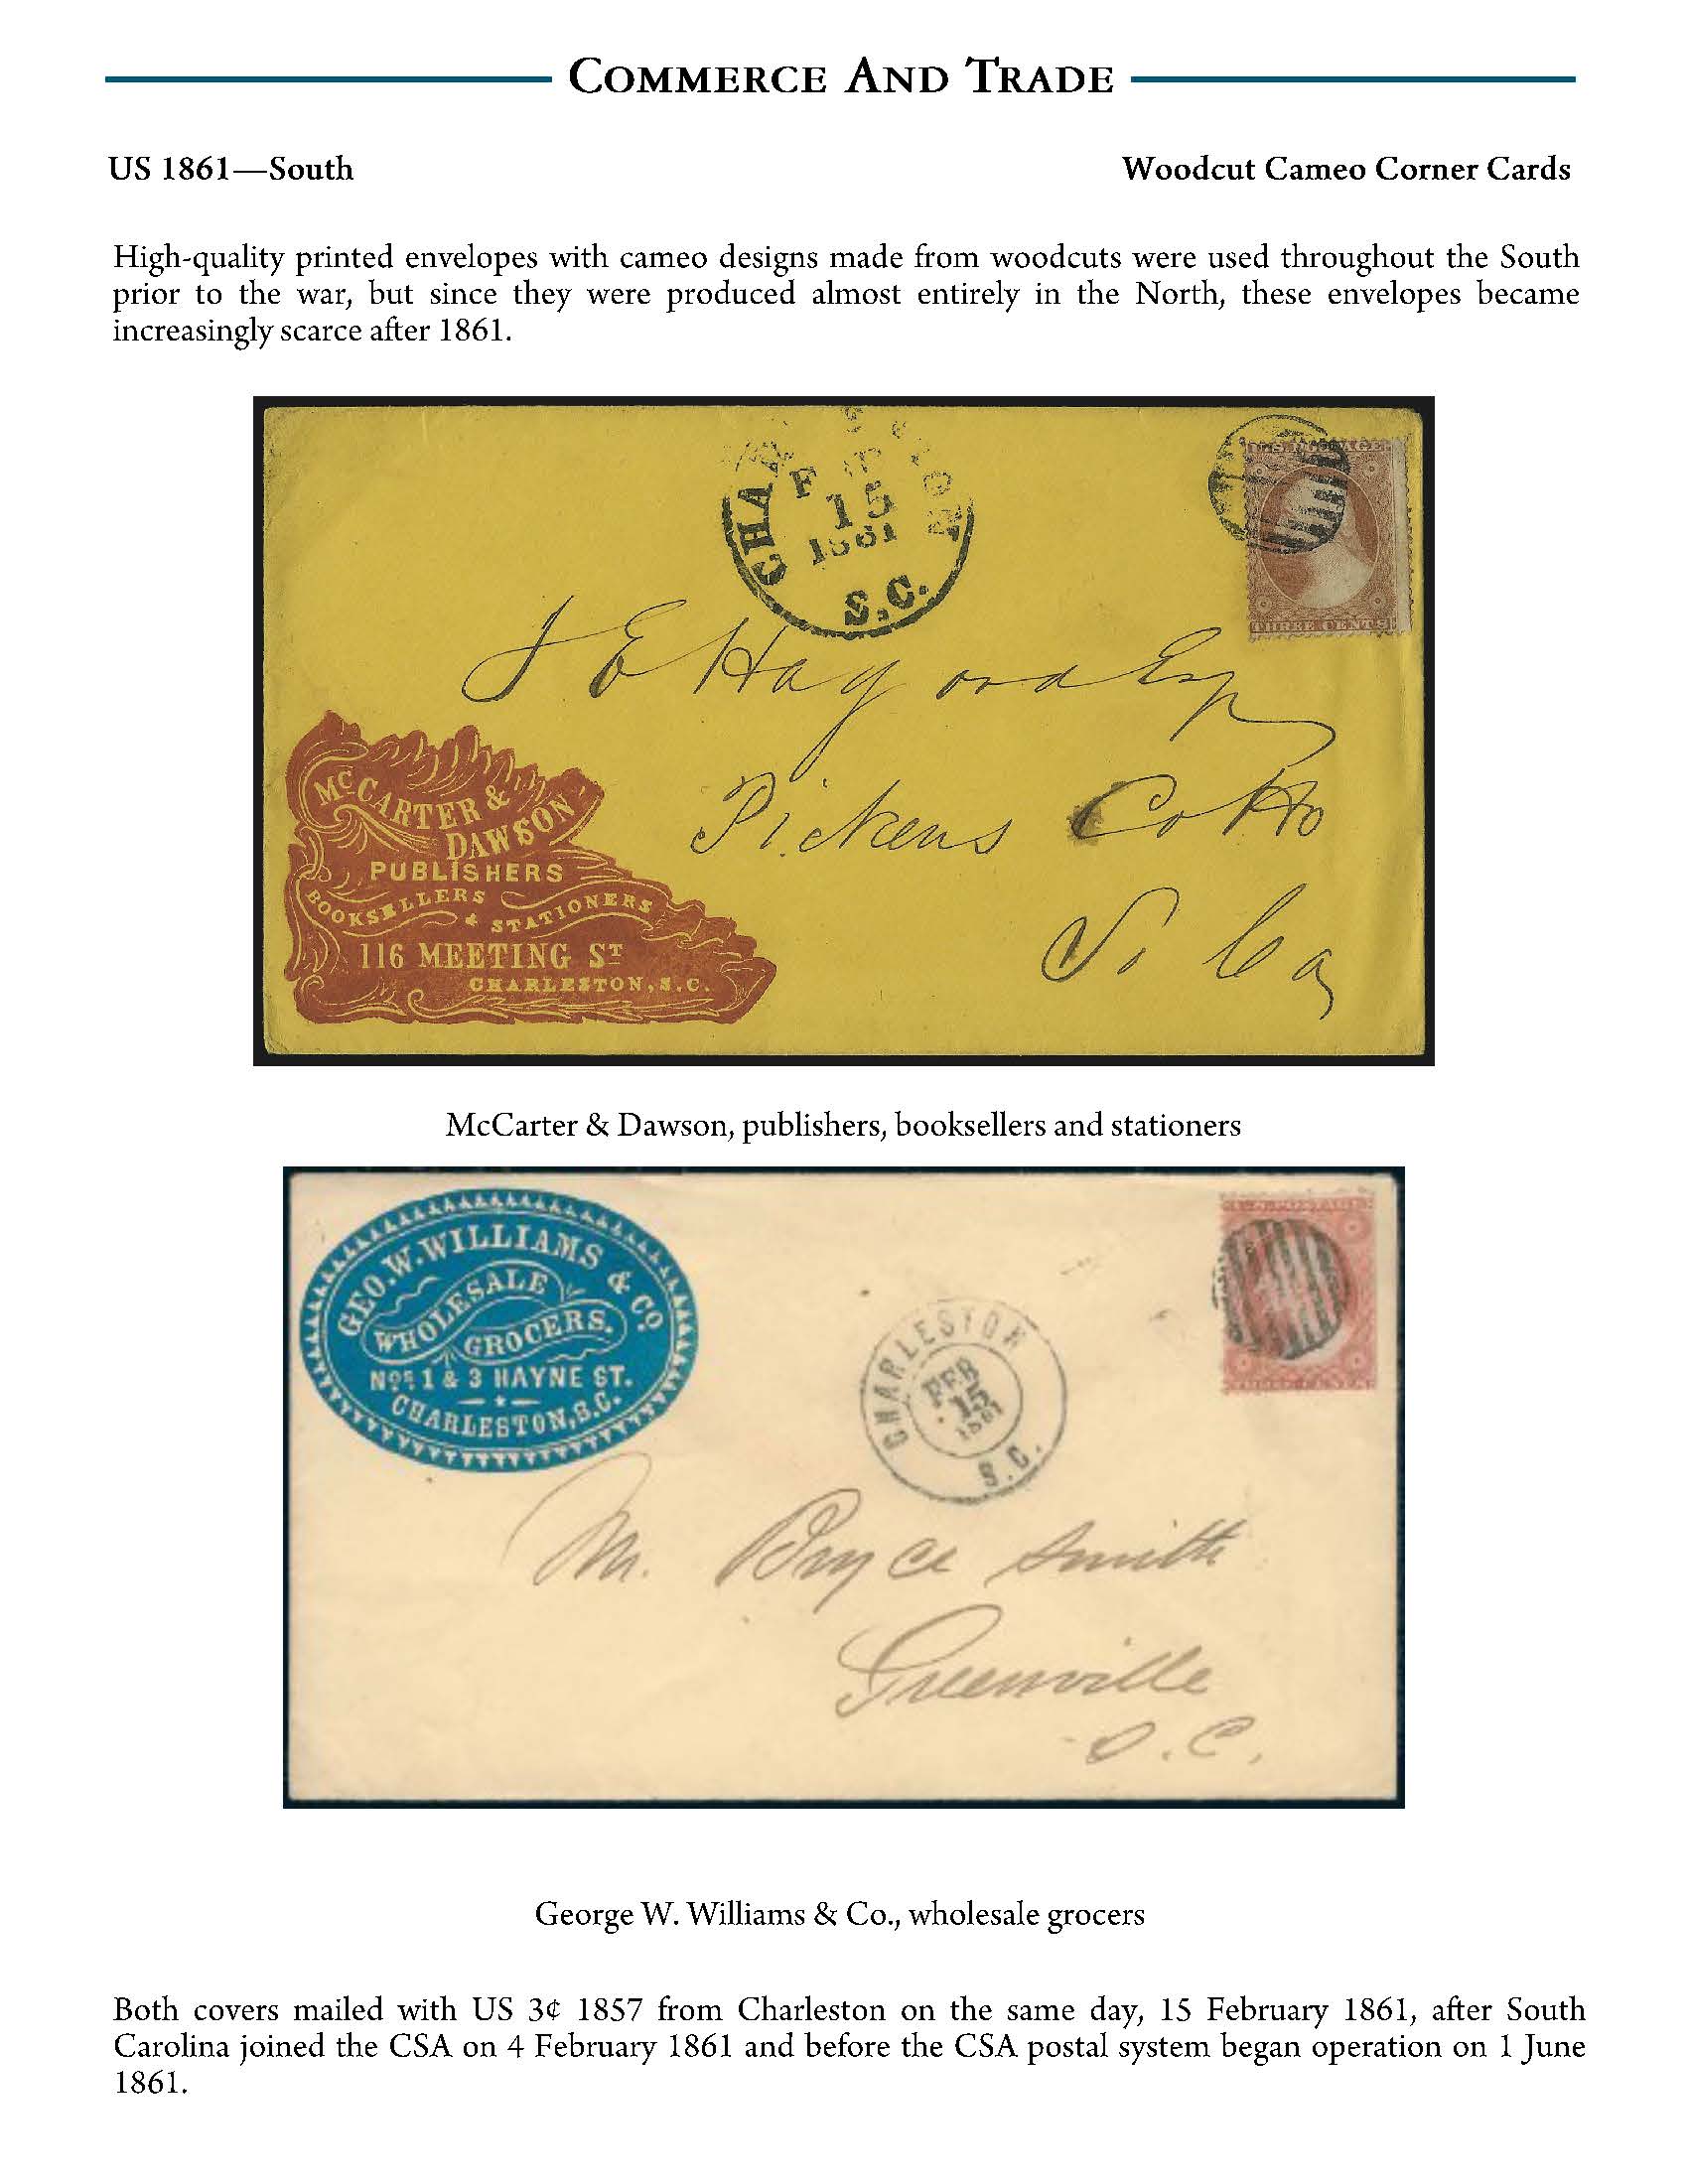 COMMERCE AND TRADE
US 1861—South
Woodcut Cameo Corner Cards
High-quality printed envelopes with cameo designs made from woodcuts were used throughout the South
prior to the war, but since they were produced almost entirely in the North, these envelopes became
increasingly scarce after 1861.
CHARLESTON
15
1861
S.C.
U.S. POSTAGE
THREE CENTS
J E Hagood Esq
Pickens Co Ho
So Ca
McCARTER &
DAWSON
PUBLISHERS
BOOKSELLERS
& STATIONERS
116 MEETING ST
CHARLESTON, S.C.
McCarter & Dawson, publishers, booksellers and stationers
GEO. W. WILLIAMS & CO.
WHOLESALE
GROCERS.
Nos. 1 & 3 HAYNE ST.
CHARLESTON, S.C.
CHARLESTON
FEB
15
1861
S.C.
Mr. Bryce Smith
Greenville
S. C.
George W. Williams & Co., wholesale grocers
Both covers mailed with US 3¢ 1857 from Charleston on the same day, 15 February 1861, after South
Carolina joined the CSA on 4 February 1861 and before the CSA postal system began operation on 1 June
1861.